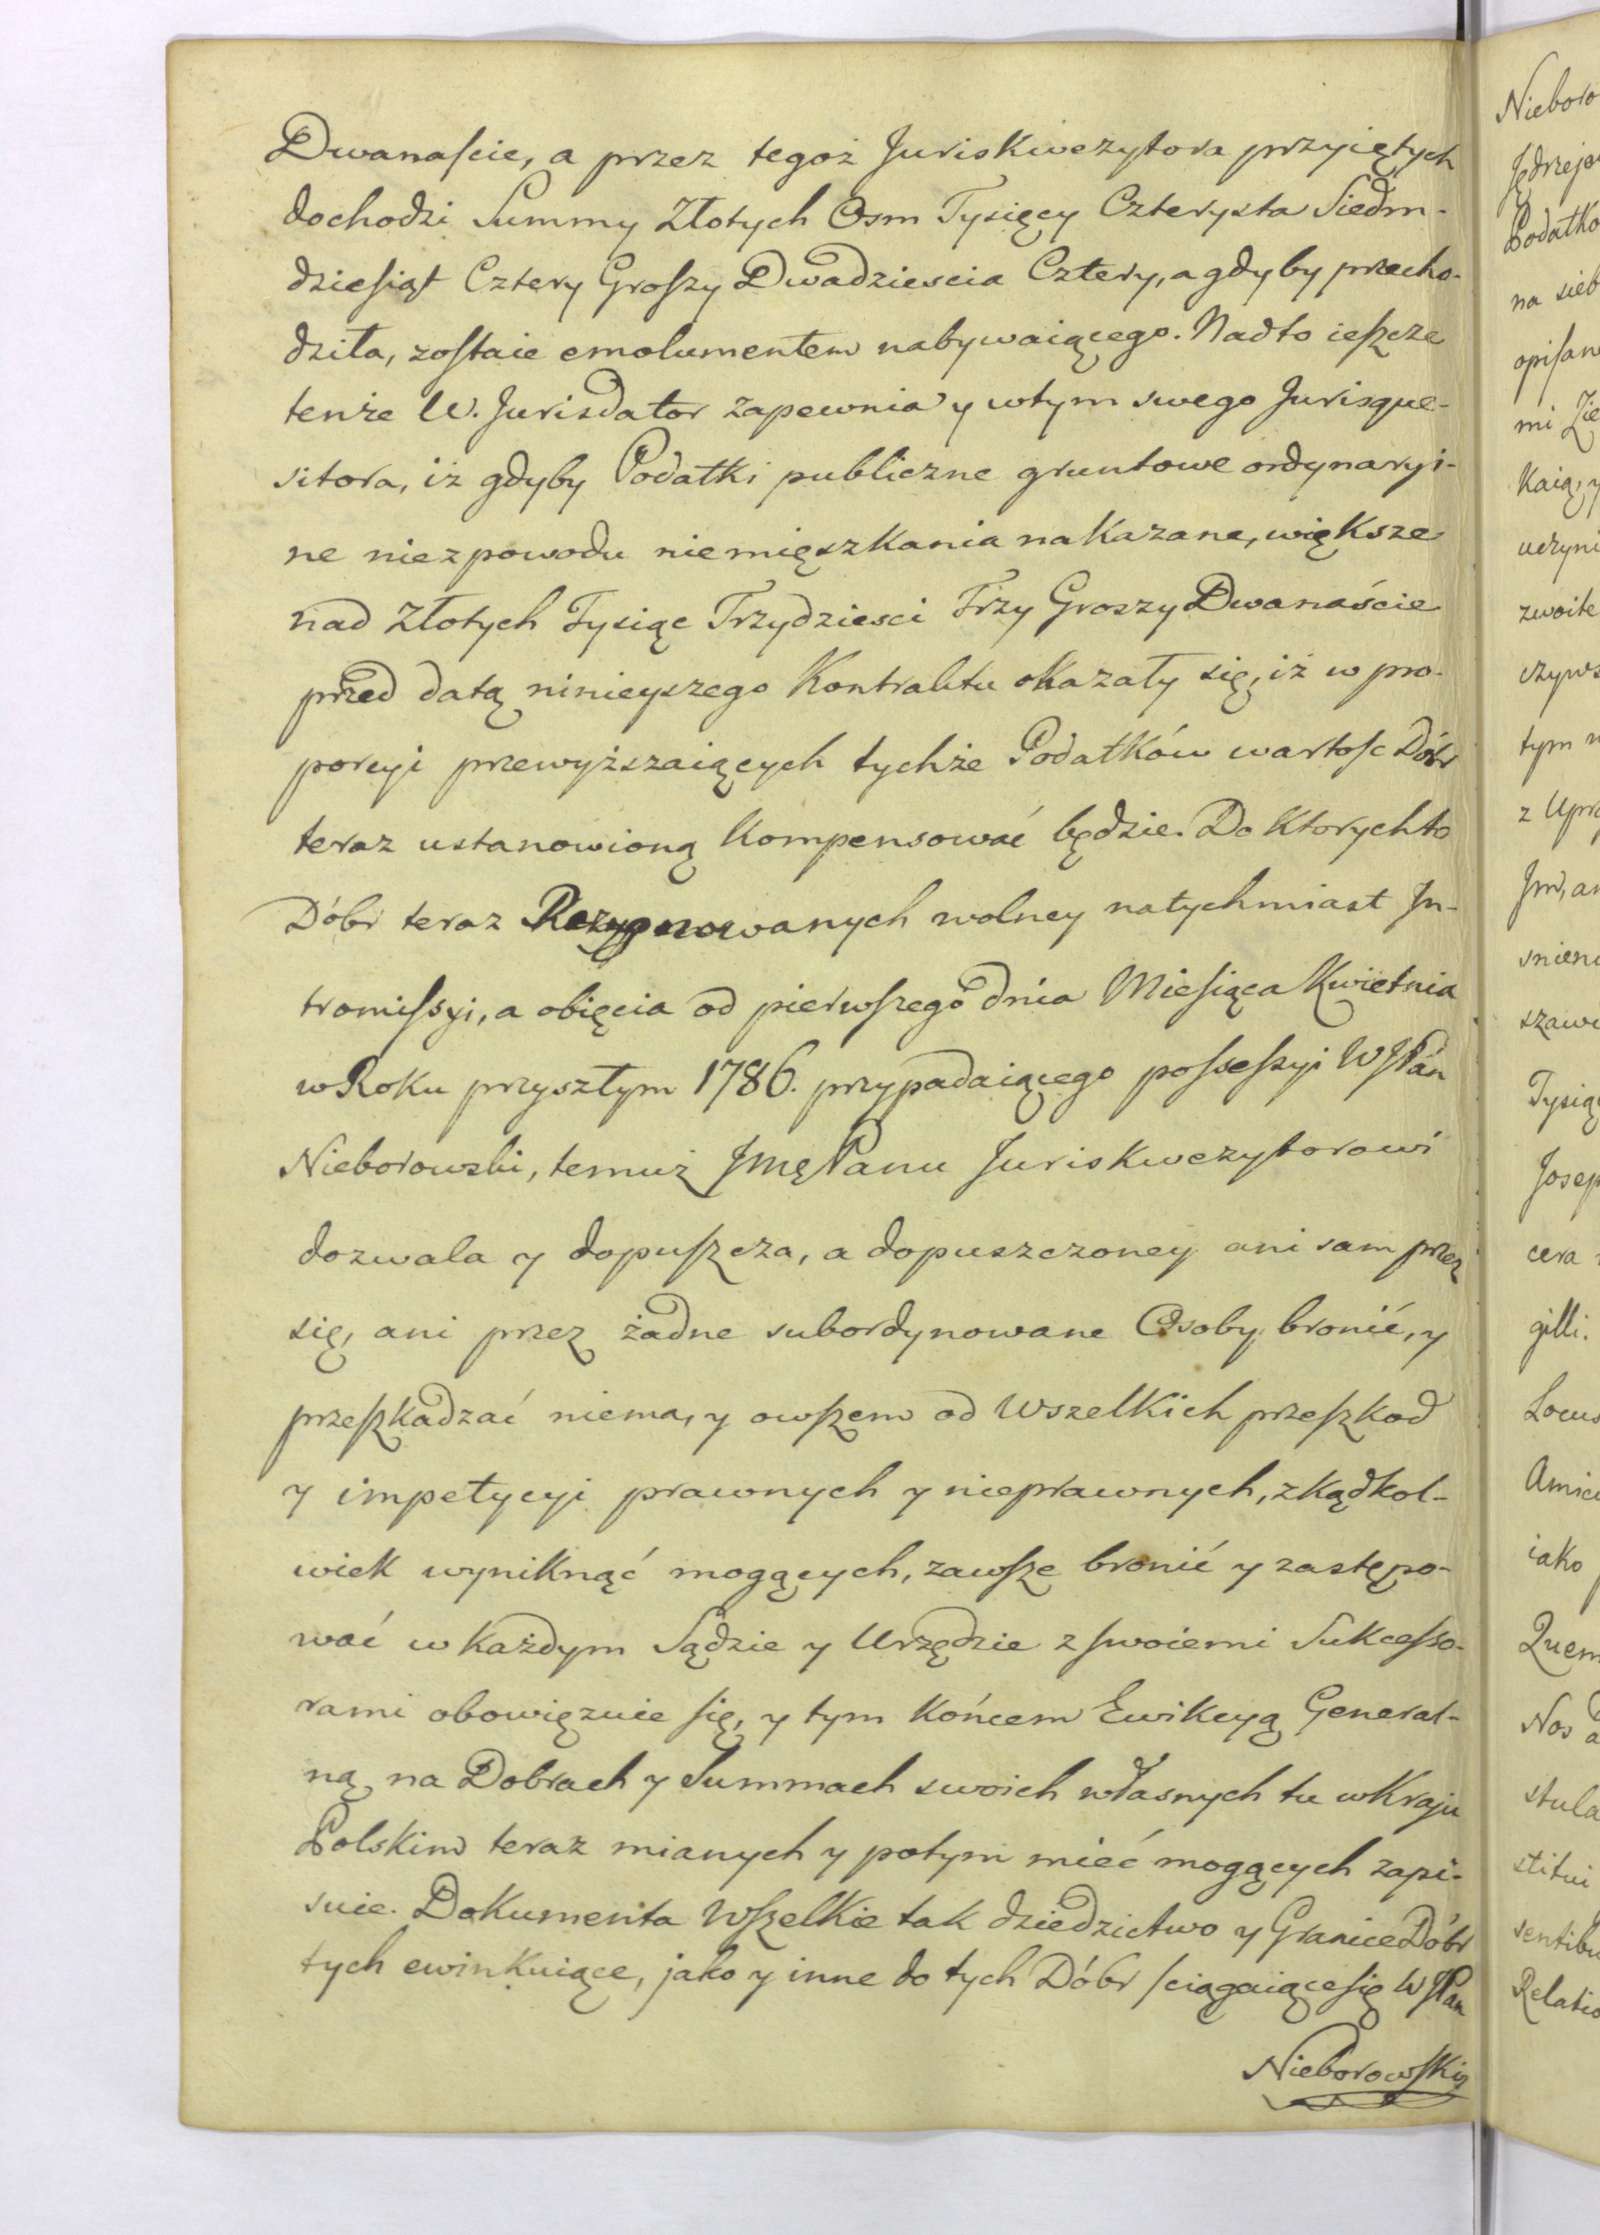 Dwanaście, a przez tegoż Juriskwezytora przyiętych
dochodzi Summy Złotych Osm Tysięcy Czterysta Siedm-
dziesiąt Cztery Groszy Dwadziescia Cztery, a gdyby przecho-
dziła, zostaie emolumentem nabywaiącego. Nadto ieszcze
tenże W. Jurisdator zapewnia y wtym swego Jurisque-
sitora, iż gdyby Podatki publiczne gruntowe ordynaryi-
ne niez powodu niemięszkania nakazane, większe
nad Złotych Tysiąc Trzydziesci Trzy Groszy Dwanaście
przed datą ninieyszego Kontraktu okazały się, iż w pro-
porcyi przewyższaiących tychże Podatków wartosc Dóbr
teraz ustanowioną kompensować będzie. Do ktorychto
Dóbr teraz Rezygnowanych wolney natychmiast In-
tromissyi, a obięcia od pierwszego dnia Miesiąca Kwietnia
w Roku przyszłym 1786. przypadaiącego possessyi WJPán
Nieborowski, temuż JmęPanu Juriskwezytorowi
dozwala y dopuszcza, a dopuszczoney ani sam przez
się, ani przez żadne subordynowane Osoby bronić, y
przeszkadzać niema, y owszem od wszelkich przeszkod
y impetycyi prawnych y nieprawnych, zkądkol-
wiek wyniknąć mogących, zawsze bronić y zastępo-
wać w każdym Sądzie y Urzędzie z swoiemi Sukcesso-
rami obowięzuie się, y tym końcem Ewikcyą General-
ną, na Dobrach y Summach swoich własnych tu w Kraju
Polskim teraz mianych y potym mieć mogących zapi-
suie. Dokumenta wszelkie tak dziedzictwo y Granice Dóbr
tych ewinkuiące, jako y inne do tych Dóbr sciągaiące się WJPan
Nieborowski
Nieboro
Jędrzeje
Podatko
na sieb
opisan
mi Zie
kaią, y
uczyni
zwoite
czyws
tym
z Upr
Jm, an
snieni
szawi
Tysiąc
Josep
cera
gilli.
Locus
Amici
iako
Quem
Nos
stula
stitui
sentibu
Relatio